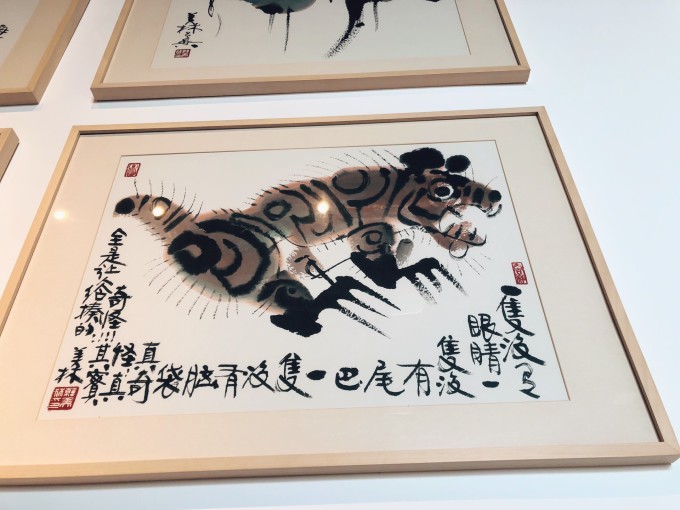 美林
一隻沒有
眼睛一
隻沒
有尾巴一隻没有脑袋
真奇
怪真
奇怪!!!其實
全是让给揍的
美林